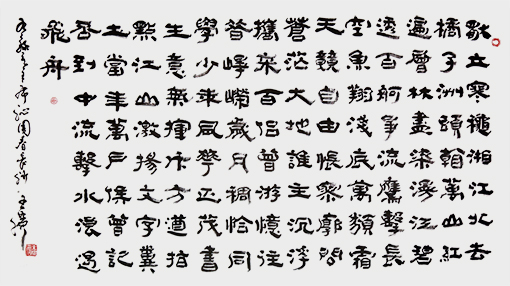 獨立寒穐湘江北去
橘子洲頭看萬山紅
遍層林盡染漫江碧
透百舸爭流鷹擊長
空魚翔淺底萬類霜
天競自由悵寥廓問
蒼茫大地誰主沉浮
攜來百侶曾游憶往
昔崢嶸歲月稠恰同
學少秊風華正茂書
生意氣揮斥方遒指
點江山激揚文字糞
土當年萬戶侯曾記
否到中流擊水浪遏
飛舟
毛主席沁園春長沙